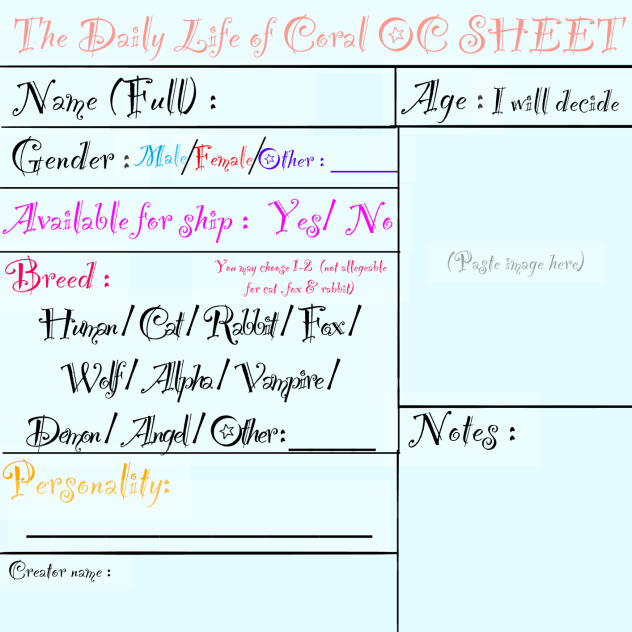 The Daily Life of Coral OC SHEET
Name (Full) :
Age : I will decide
Gender : Male/Female/Other : ______
Available for ship : Yes/ No
(Paste image here)
Breed :
You may choose 1-2 (not allegeable
for cat , fox & rabbit)
Human/ Cat/ Rabbit/ Fox/
Wolf/ Alpha/ Vampire/
Demon/ Angel/ Other: ______
Notes :
Personality:
Creator name :